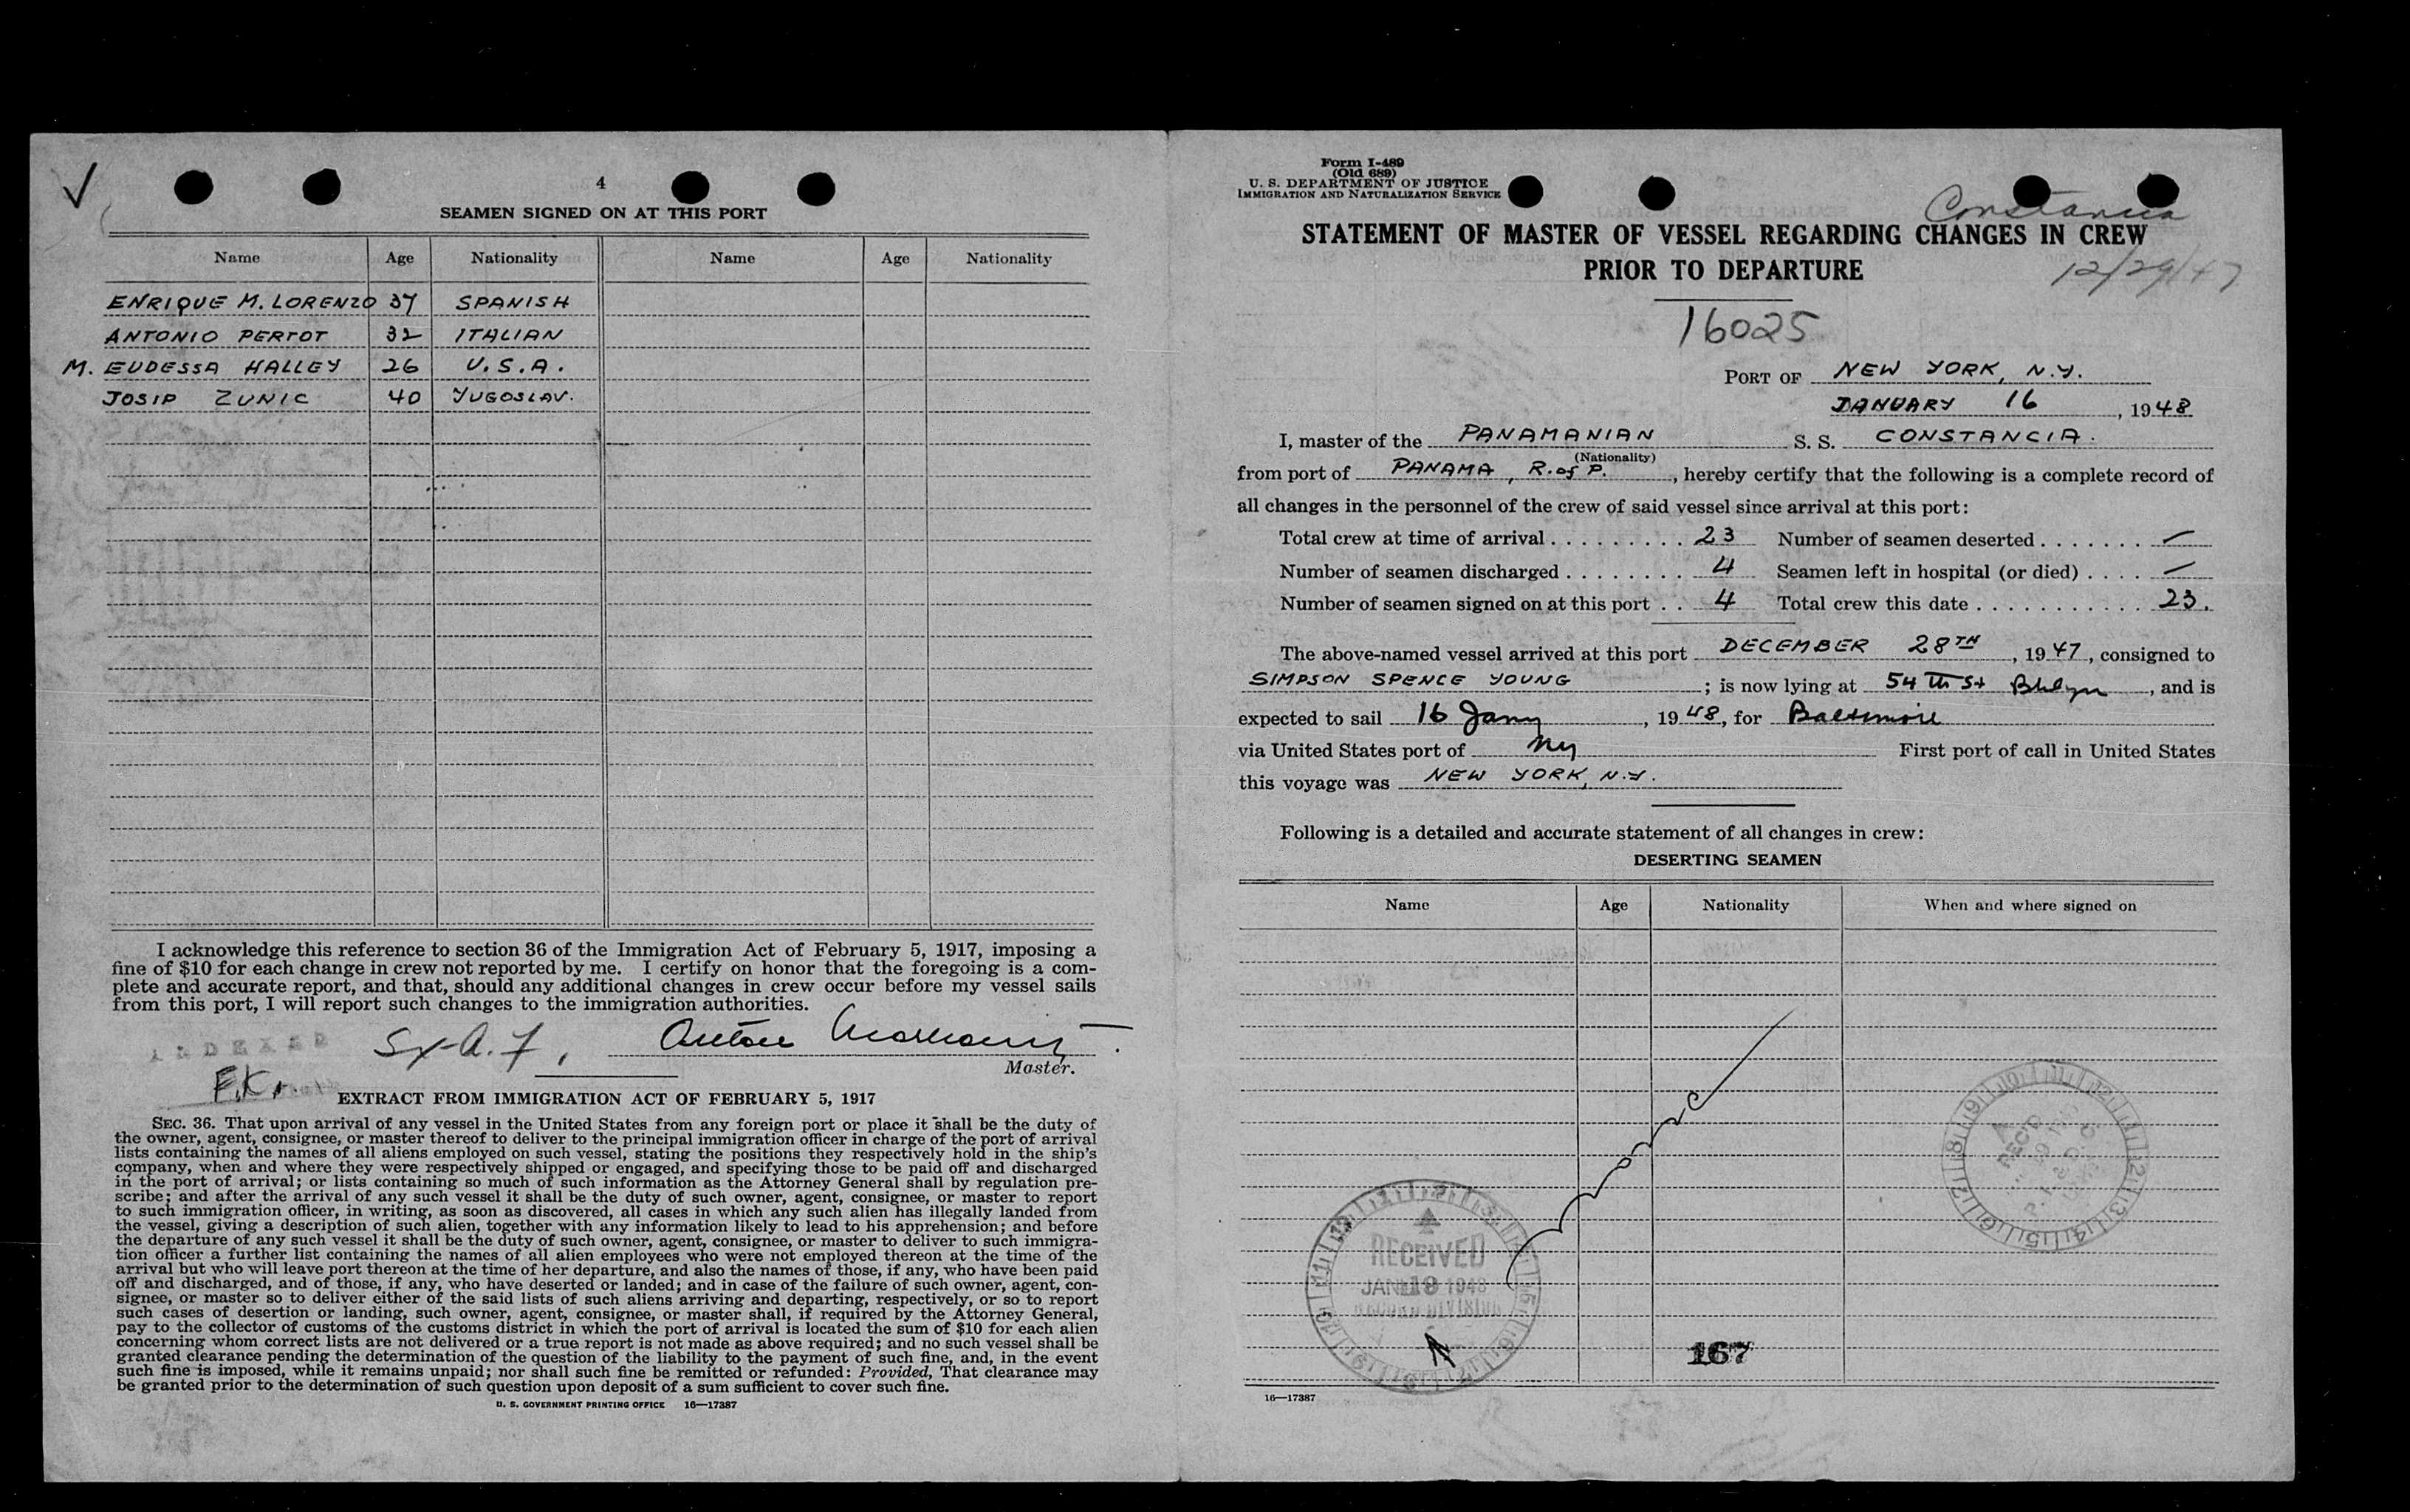 4
SEAMEN SIGNED ON AT THIS PORT
Name Age Nationality Name Age Nationality
ENRIQUE M. LORENZO 37 SPANISH
ANTONIO PERTOT 32 ITALIAN
M. EUDESSA HALLEY 26 U.S.A.
JOSIP ZUNIC 40 YUGOSLAV.
I acknowledge this reference to section 36 of the Immigration Act of February 5, 1917, imposing a
fine of $10 for each change in crew not reported by me. I certify on honor that the foregoing is a com-
plete and accurate report, and that, should any additional changes in crew occur before my vessel sails
from this port, I will report such changes to the immigration authorities.
INDEXED
Master.
F.K.
EXTRACT FROM IMMIGRATION ACT OF FEBRUARY 5, 1917
SEC. 36. That upon arrival of any vessel in the United States from any foreign port or place it shall be the duty of
the owner, agent, consignee, or master thereof to deliver to the principal immigration officer in charge of the port of arrival
lists containing the names of all aliens employed on such vessel, stating the positions they respectively hold in the ship's
company, when and where they were respectively shipped or engaged, and specifying those to be paid off and discharged
in the port of arrival; or lists containing so much of such information as the Attorney General shall by regulation pre-
scribe; and after the arrival of any such vessel it shall be the duty of such owner, agent, consignee, or master to report
to such immigration officer, in writing, as soon as discovered, all cases in which any such alien has illegally landed from
the vessel, giving a description of such alien, together with any information likely to lead to his apprehension; and before
the departure of any such vessel it shall be the duty of such owner, agent, consignee, or master to deliver to such immigra-
tion officer a further list containing the names of all alien employees who were not employed thereon at the time of the
arrival but who will leave port thereon at the time of her departure, and also the names of those, if any, who have been paid
off and discharged, and of those, if any, who have deserted or landed; and in case of the failure of such owner, agent, con-
signee, or master so to deliver either of the said lists of such aliens arriving and departing, respectively, or so to report
such cases of desertion or landing, such owner, agent, consignee, or master shall, if required by the Attorney General,
pay to the collector of customs of the customs district in which the port of arrival is located the sum of $10 for each alien
concerning whom correct lists are not delivered or a true report is not made as above required; and no such vessel shall be
granted clearance pending the determination of the question of the liability to the payment of such fine, and, in the event
such fine is imposed, while it remains unpaid; nor shall such fine be remitted or refunded: Provided, That clearance may
be granted prior to the determination of such question upon deposit of a sum sufficient to cover such fine.
U. S. GOVERNMENT PRINTING OFFICE 16—17387
Form I-489
(Old 689)
U. S. DEPARTMENT OF JUSTICE
IMMIGRATION AND NATURALIZATION SERVICE
Constancia
STATEMENT OF MASTER OF VESSEL REGARDING CHANGES IN CREW
PRIOR TO DEPARTURE
12/29/47
16025
PORT OF NEW YORK, N.Y.
JANUARY 16, 1948
I, master of the PANAMANIAN S. S. CONSTANCIA.
(Nationality)
from port of PANAMA, R. of P., hereby certify that the following is a complete record of
all changes in the personnel of the crew of said vessel since arrival at this port:
Total crew at time of arrival . . . . . . . . . 23 Number of seamen deserted . . . . . . . —
Number of seamen discharged . . . . . . . . 4 Seamen left in hospital (or died) . . . . —
Number of seamen signed on at this port . . 4 Total crew this date . . . . . . . . . . . 23.
The above-named vessel arrived at this port DECEMBER 28TH, 1947, consigned to
SIMPSON SPENCE YOUNG; is now lying at 54th St Bklyn, and is
expected to sail 16 Jany, 1948, for Baltimore
via United States port of NY First port of call in United States
this voyage was NEW YORK, N.Y.
Following is a detailed and accurate statement of all changes in crew:
DESERTING SEAMEN
Name Age Nationality When and where signed on
none
REC'D
RECEIVED
JAN 19 1948
RECORD DIVISION
167
16—17387